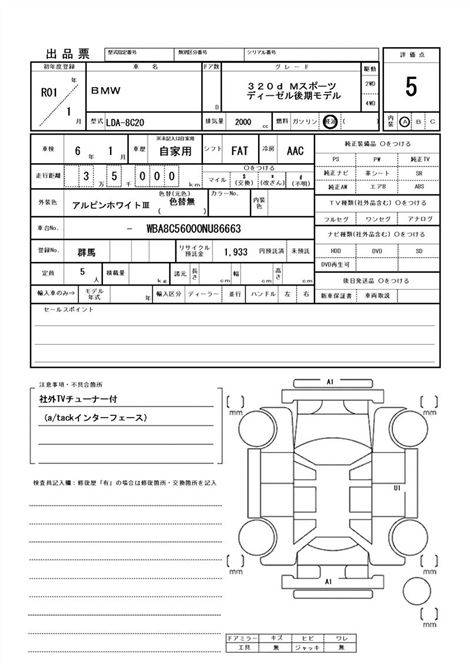 出品票 型式指定番号 類別区分番号 シリアル番号
初年度登録 車名 ドア数 グレード 評価点
R01年 BMW D 320d Mスポーツ 2WD 5
1月 ディーゼル後期モデル 4WD
型式 LDA-8C20 排気量 2000 cc 燃料 ガソリン 軽油 ( ) 内装 A B C
車検 6年 1月 車歴 ※未記入は自家用 自家用 シフト FAT 冷房 AAC 純正装備品 〇をつける
PS PW 純正TV
走行距離 3万 5千 0 0 0 km 〇をつける マイル $(交換) *(改ざん) #(不明) 純正ナビ 革シート SR
純正AW エアB ABS
外装色 アルピンホワイトⅢ 色替(元色) 色替無 ( ) カラーNo. 内装色 TV種類(社外品含む) 〇をつける
フルセグ ワンセグ アナログ
車台No. - WBA8C56000NU86663 ナビ種類(社外品含む) 〇をつける
登録No. 群馬 リサイクル預託金 1,933 円預託済 未預託 HDD DVD SD
DVD再生可
定員 5人 積載量 kg 諸元 長さ cm 幅 cm 高さ cm 後日発送品 〇をつける
輸入車のみ⇒ モデル年式 年 輸入区分 ディーラー 並行 ハンドル 左 右 新車保証書 車両取説
セールスポイント
注意事項・不具合箇所
社外TVチューナー付
(a/tackインターフェース)
検査員記入欄:修復歴「有」の場合は修復箇所・交換箇所を記入
A1
mm mm
U1
mm mm
A1
mm
ドアミラー キズ ヒビ ワレ
工具 無 ジャッキ 無